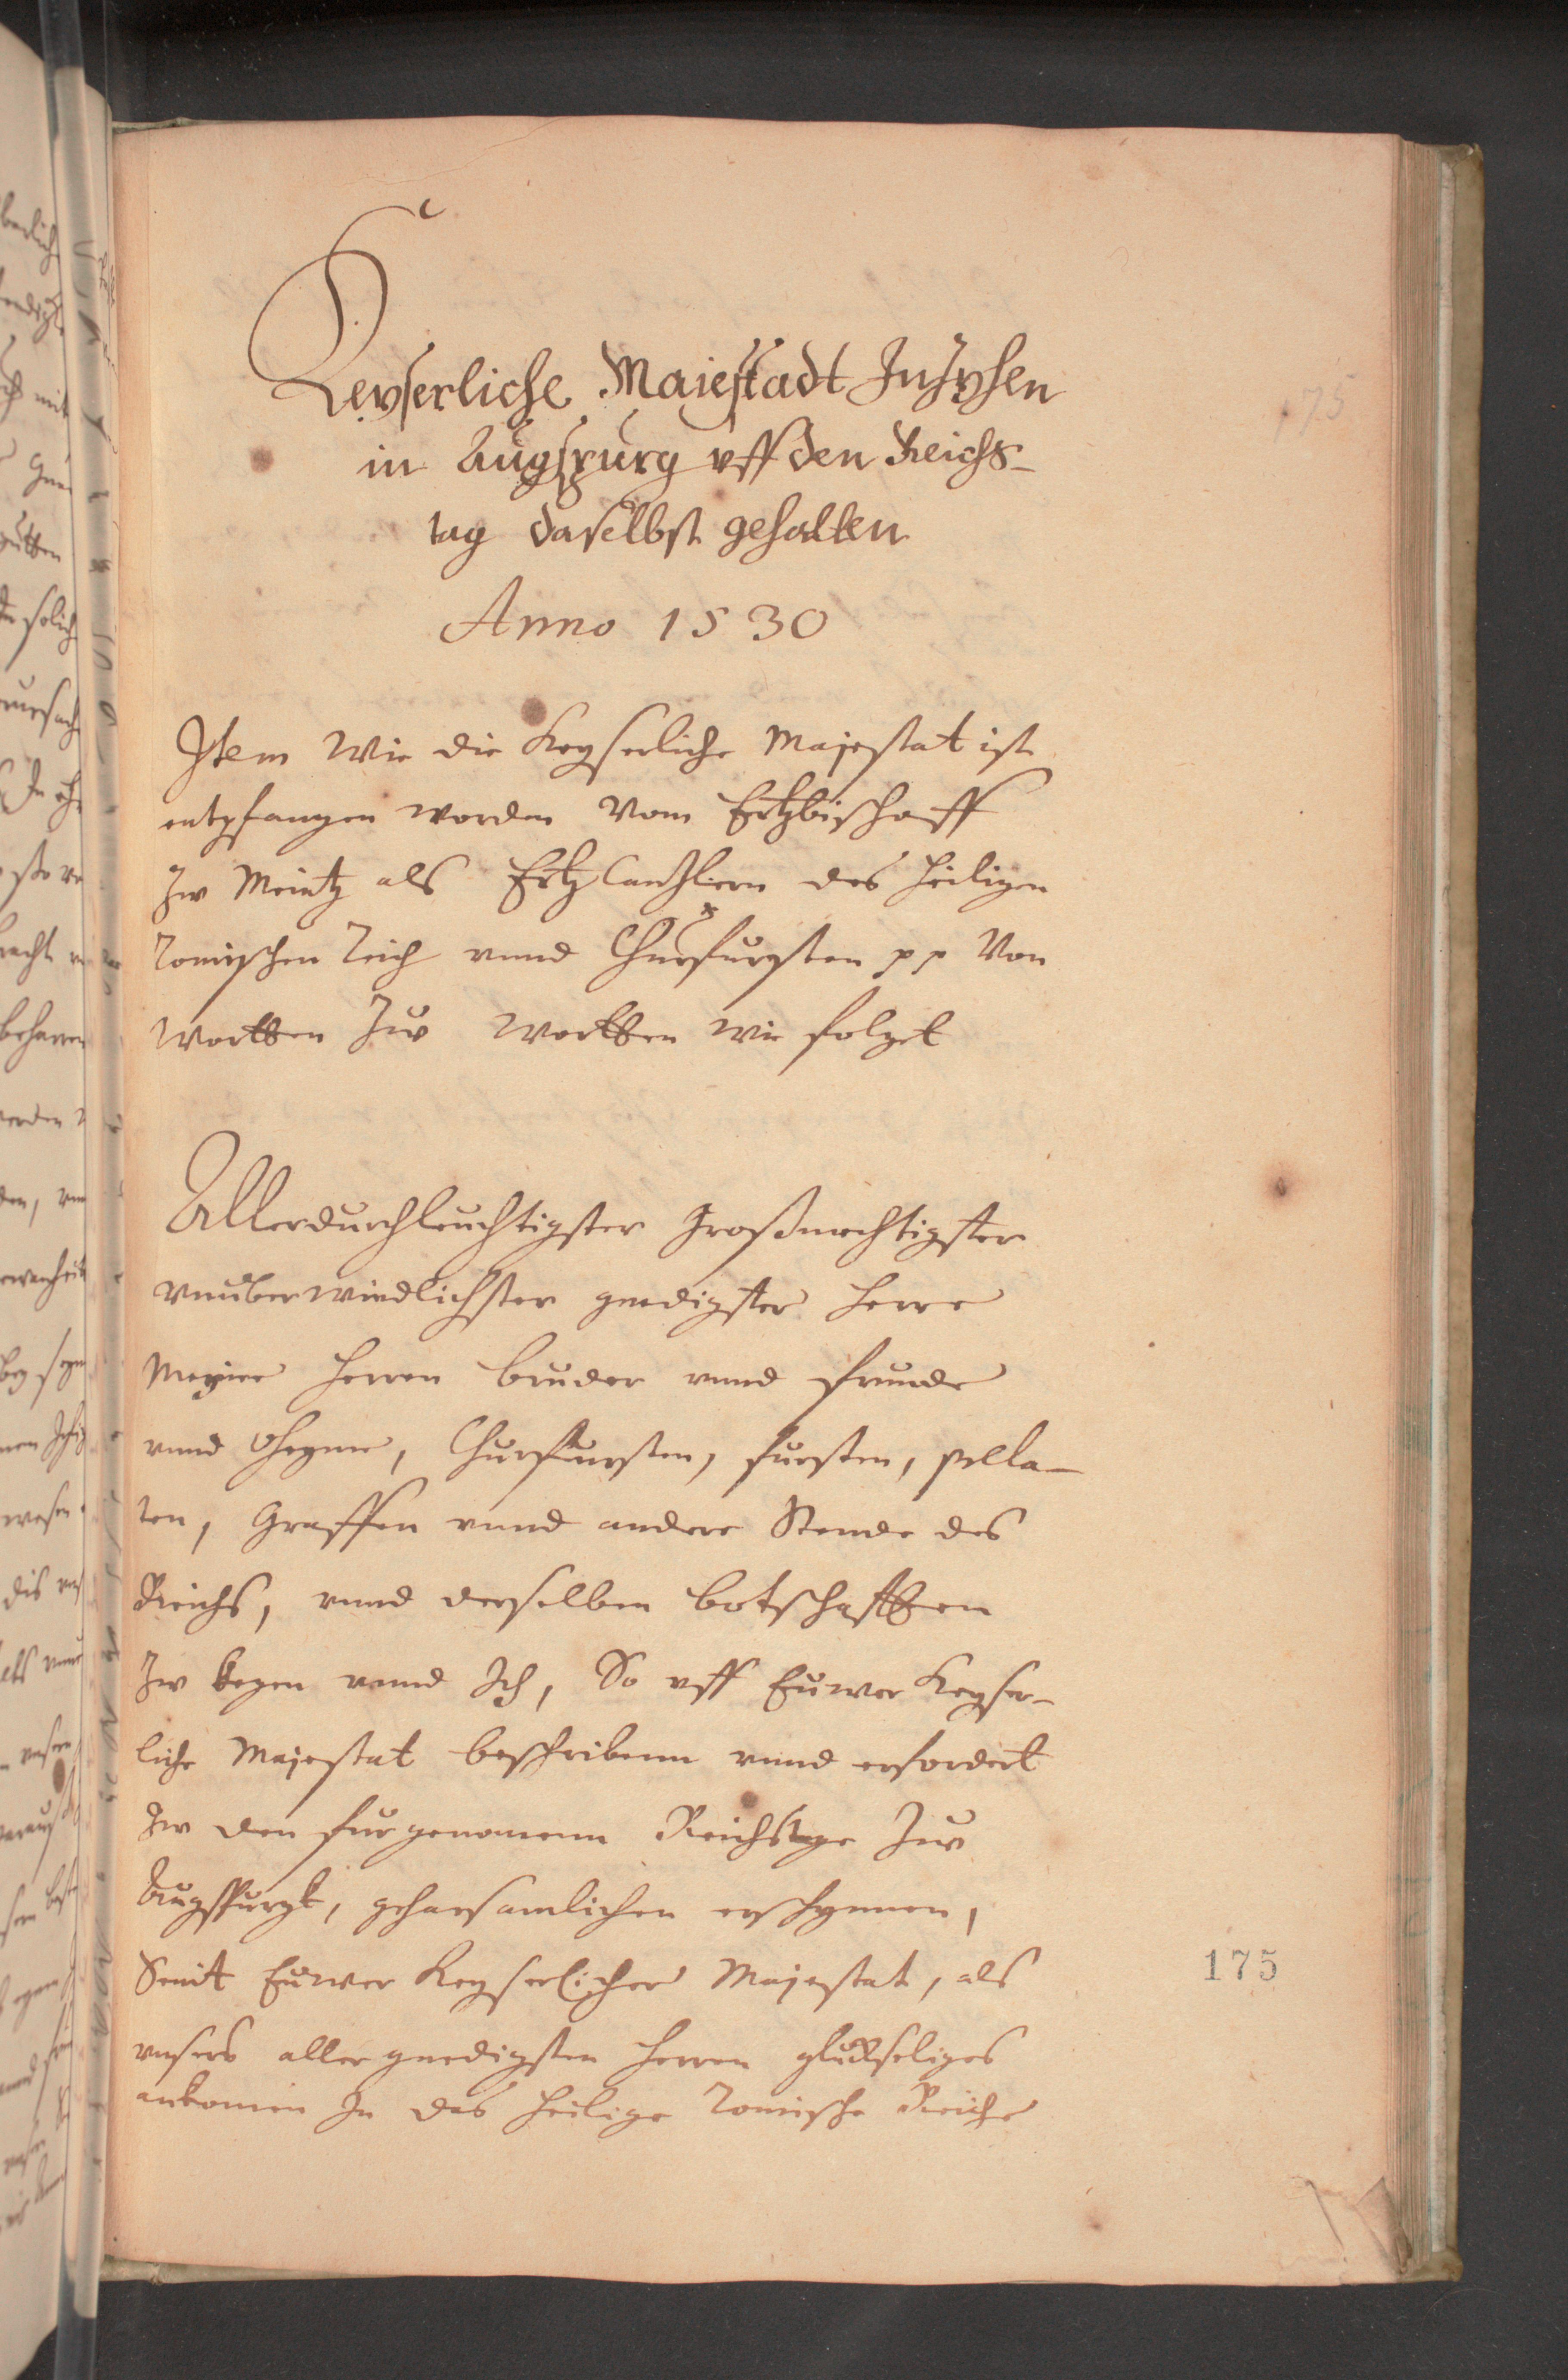 Keyserliche Maiestadt Inzyhen
in Augspurg vff den Reichs-
tag daselbst gehalten
Anno 1530
175
Item Wie die Keyserliche Majestat ist
entpfangen worden Vom Ertzbischoff
Zw Meintz als Ertz Canzlern des heiligen
Romischen Reich vnnd Churfursten pp Von
Wortten Zuv Wortten wie folget
Allerdurchleuchtigster Großmechtigster
vnuberwindlichster gnedigster Herre
Meyne Herren bruder vnnd frunde
vnnd Oheyme, Churfursten, fursten, prela-
ten, Graffen vnnd andere Stende des
Reichs, vnnd derselben botschafften
Zw kegen vnnd Ich, So vff Euwer Keyser-
liche Majestat beschribenn vnnd erfordert
Zw den furgenomenn Reichstage Zuv
Augspurgk, gehorsamlichen erschynnen,
Seint Euwer Keyserlicher Majestat, als
vnsers aller gnedigsten Herren gluckseliges
ankomen In das heilige Romische Reiche
175